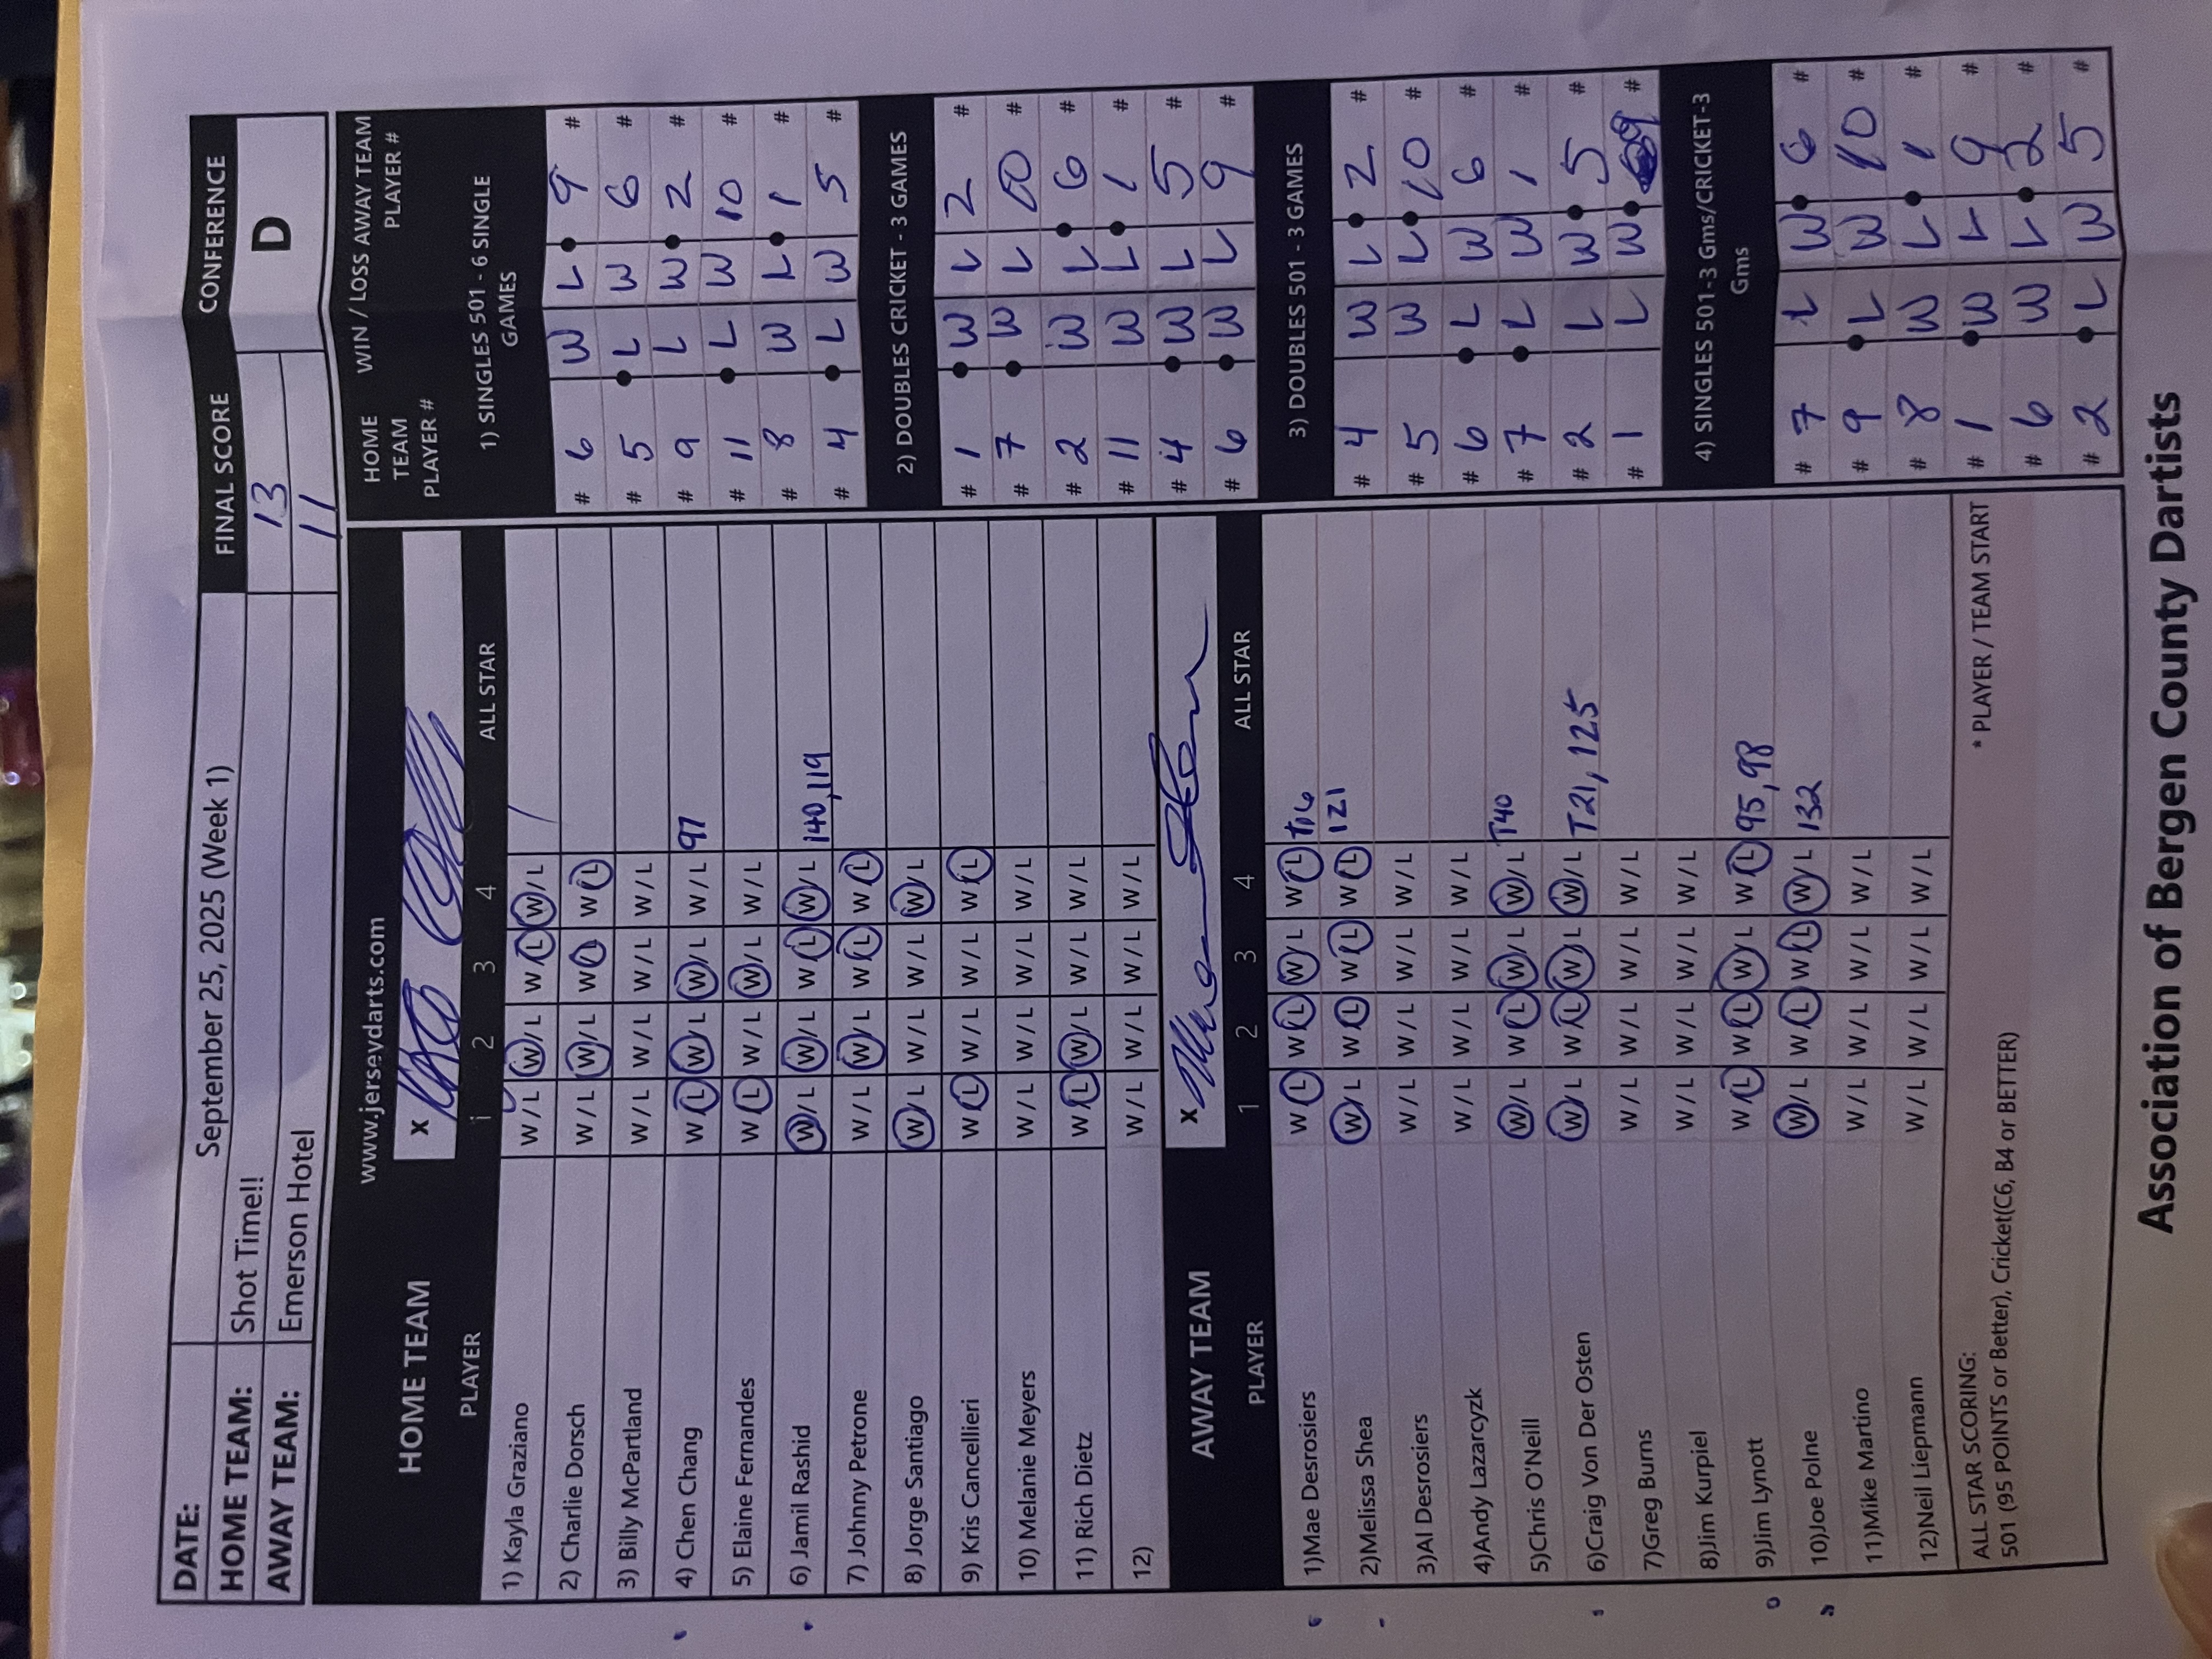 DATE: September 25, 2025 (Week 1) FINAL SCORE CONFERENCE
HOME TEAM: Shot Time!! 13 D
AWAY TEAM: Emerson Hotel 11
www.jerseydarts.com
HOME TEAM X
PLAYER 1 2 3 4 ALL STAR
1) Kayla Graziano W / L W / L W / L W / L
2) Charlie Dorsch W / L W / L W L W / L
3) Billy McPartland W / L W / L W / L W / L
4) Chen Chang W / L W / L W / L W / L 97
5) Elaine Fernandes W / L W / L W / L W / L
6) Jamil Rashid W / L W / L W / L W / L 140,119
7) Johnny Petrone W / L W / L W / L W / L
8) Jorge Santiago W / L W / L W / L W / L
9) Kris Cancellieri W / L W / L W / L W / L
10) Melanie Meyers W / L W / L W / L W / L
11) Rich Dietz W / L W / L W / L W / L
12) W / L W / L W / L W / L
AWAY TEAM X
PLAYER 1 2 3 4 ALL STAR
1)Mae Desrosiers W / L W / L W / L W / L
2)Melissa Shea W / L W / L W / L W / L 121
3)Al Desrosiers W / L W / L W / L W / L
4)Andy Lazzarcyzk W / L W / L W / L W / L
5)Chris O'Neill W / L W / L W / L W / L T40
6)Craig Von Der Osten W / L W / L W / L W / L T21, 125
7)Greg Burns W / L W / L W / L W / L
8)Jim Kurpiel W / L W / L W / L W / L
9)Jim Lynott W / L W / L W / L W / L 95, 98
10)Joe Polne W / L W / L W / L W / L 132
11)Mike Martino W / L W / L W / L W / L
12)Neil Liepmann W / L W / L W / L W / L
ALL STAR SCORING: * PLAYER / TEAM START
501 (95 POINTS or Better), Cricket(C6, B4 or BETTER)
HOME TEAM PLAYER # WIN / LOSS AWAY TEAM PLAYER #
1) SINGLES 501 - 6 SINGLE GAMES
# 6 W L 9 #
# 5 L W 6 #
# 9 L W 2 #
# 11 L W 10 #
# 8 W L 1 #
# 4 L W 5 #
2) DOUBLES CRICKET - 3 GAMES
# 1 W L 2 #
# 7 W L 10 #
# 2 W L 6 #
# 11 W L 1 #
# 4 W L 5 #
# 6 W L 9 #
3) DOUBLES 501 - 3 GAMES
# 4 W L 2 #
# 5 W L 10 #
# 6 L W 6 #
# 7 L W 1 #
# 2 L W 5 #
# 1 L W 9 #
4) SINGLES 501-3 Gms/CRICKET-3 Gms
# 7 L W 6 #
# 9 L W 10 #
# 8 W L 1 #
# 1 W L 9 #
# 6 W L 2 #
# 2 L W 5 #
Association of Bergen County Dartists